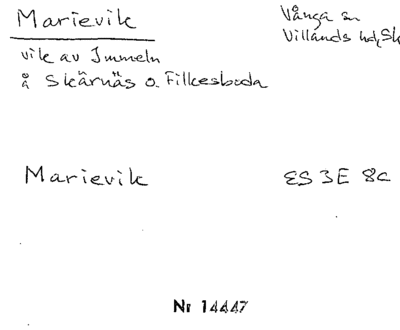 Marievik
Vånga sn
Villands hd, Sk
vik av Immeln
å Skärnäs o. Filkesboda
Marievik
ES 3E 8c
Nr 14447